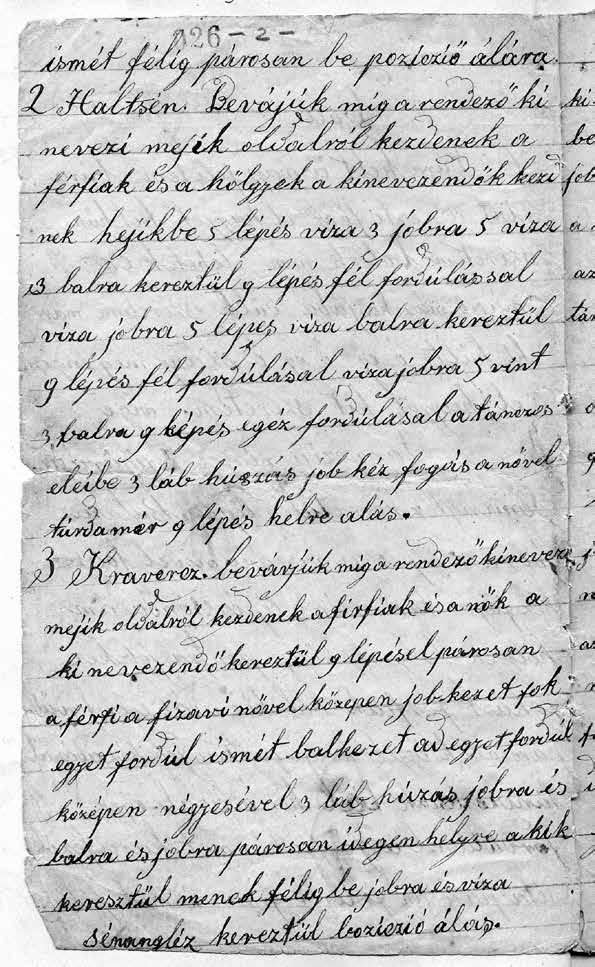 026 - 2 -
ismét félig párosan be poziczió álára.
2 Haltsén. Bevájúk mig a rendező ki
nevezi mejik oldalról kezdenek a
férfiak és a hölgyek a kinevezendők kezd
nek hejikbe 5 lépés viza 3 jobra 5 viza
3 balra kereztül 9 lépés fél fordúlással
viza jobra 5 lépes viza balra kereztül
9 lépés fél fordúlásal viza jobra 5 vint
3 balra 9 képés egéz fordúlásal a tánczos
eleibe 3 láb húszás job kéz fogás a növel
túrdamér 9 lépés helre alás.
3 Kraverez. bevárjúk mig a rendező kineveze
mejik oldalról kezdenek a firfiak és a nők a
ki nevezendő kereztül 9 lépésel párosan
a férfi a fizavi növel közepen job kezet fok
egyet fordúl ismét balkezet ad egyet fordúl
középen négyesével 3 láb húzás jobra és
balra és jobra párosan idegen helyre a kik
keresztül menek félig be jobra és viza
sénangléz kereztül boziczió álás.